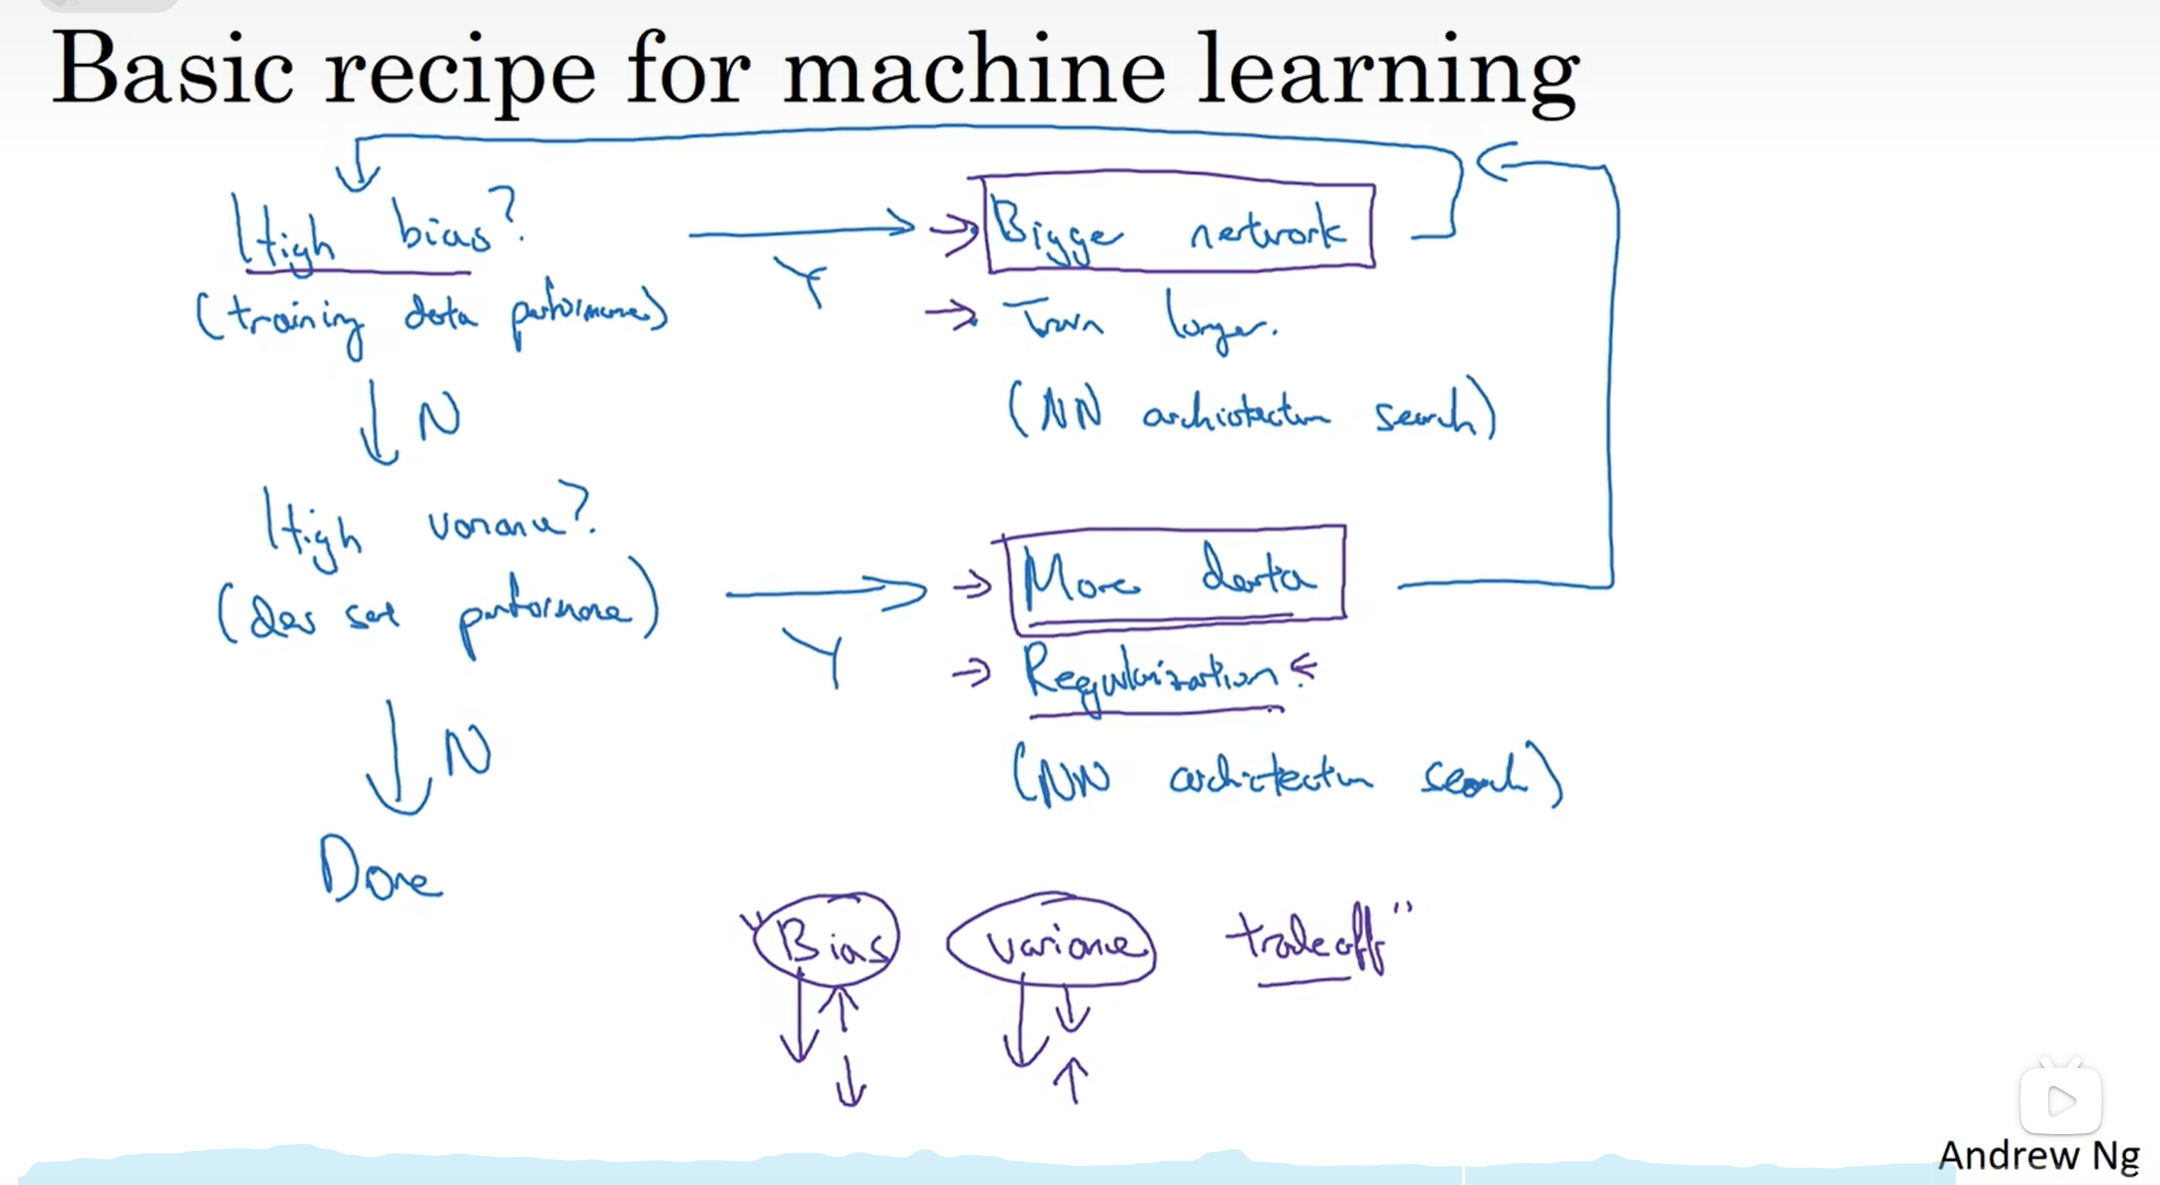 Basic recipe for machine learning
High bias?
(training data performance)
Y
Bigger network
Train longer.
(NN architecture search)
N
High variance?
(dev set performance)
Y
More data
Regularization
(NN architecture search)
N
Done
"Bias variance tradeoff"
Andrew Ng